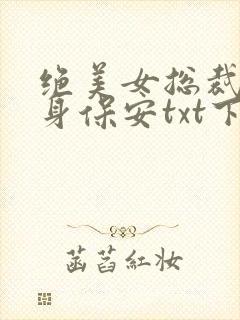 绝美女总裁
身保安txt下
菡萏红妆